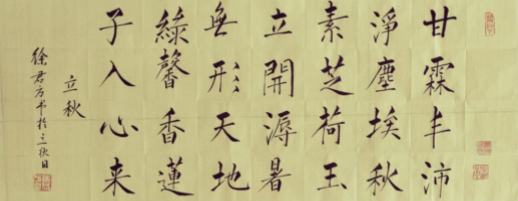 甘霖丰沛
淨塵埃秋
素芝荷玉
立開溽暑
無形天地
綠馨香蓮
子入心来
立秋
徐君方书於日